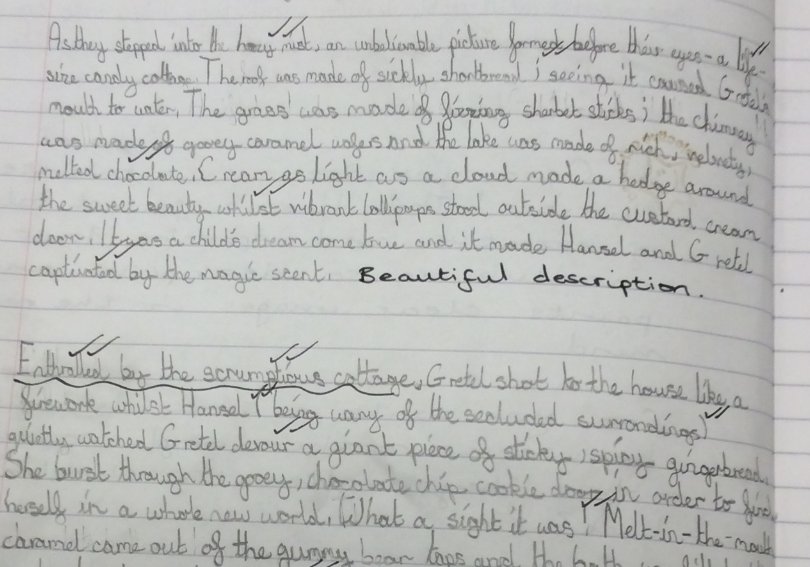 As they stepped into the hazy mist, an unbelievable picture formed before their eyes - a life-
size candy cottage. The roof was made of sickly shortbread; seeing it caused Gretel's
mouth to water. The grass was made of fizzing sherbet sticks; the chimney
was made of gooey caramel wafers and the lake was made of rich, velvety,
melted chocolate. Cream as light as a cloud made a hedge around
the sweet beauty whilst vibrant lollipops stood outside the custard cream
door. It was a child's dream come true and it made Hansel and Gretel
captivated by the magic scent. Beautiful description.
Enthralled by the scrumptious cottage, Gretel shot to the house like a
firework whilst Hansel (being wary of the secluded surrondings)
quietly watched Gretel devour a giant piece of sticky, spicy gingerbread.
She burst through the gooey, chocolate chip cookie door in order to find
herself in a whole new world. What a sight it was! Melt-in-the-mouth
caramel came out of the gummy bear taps and the